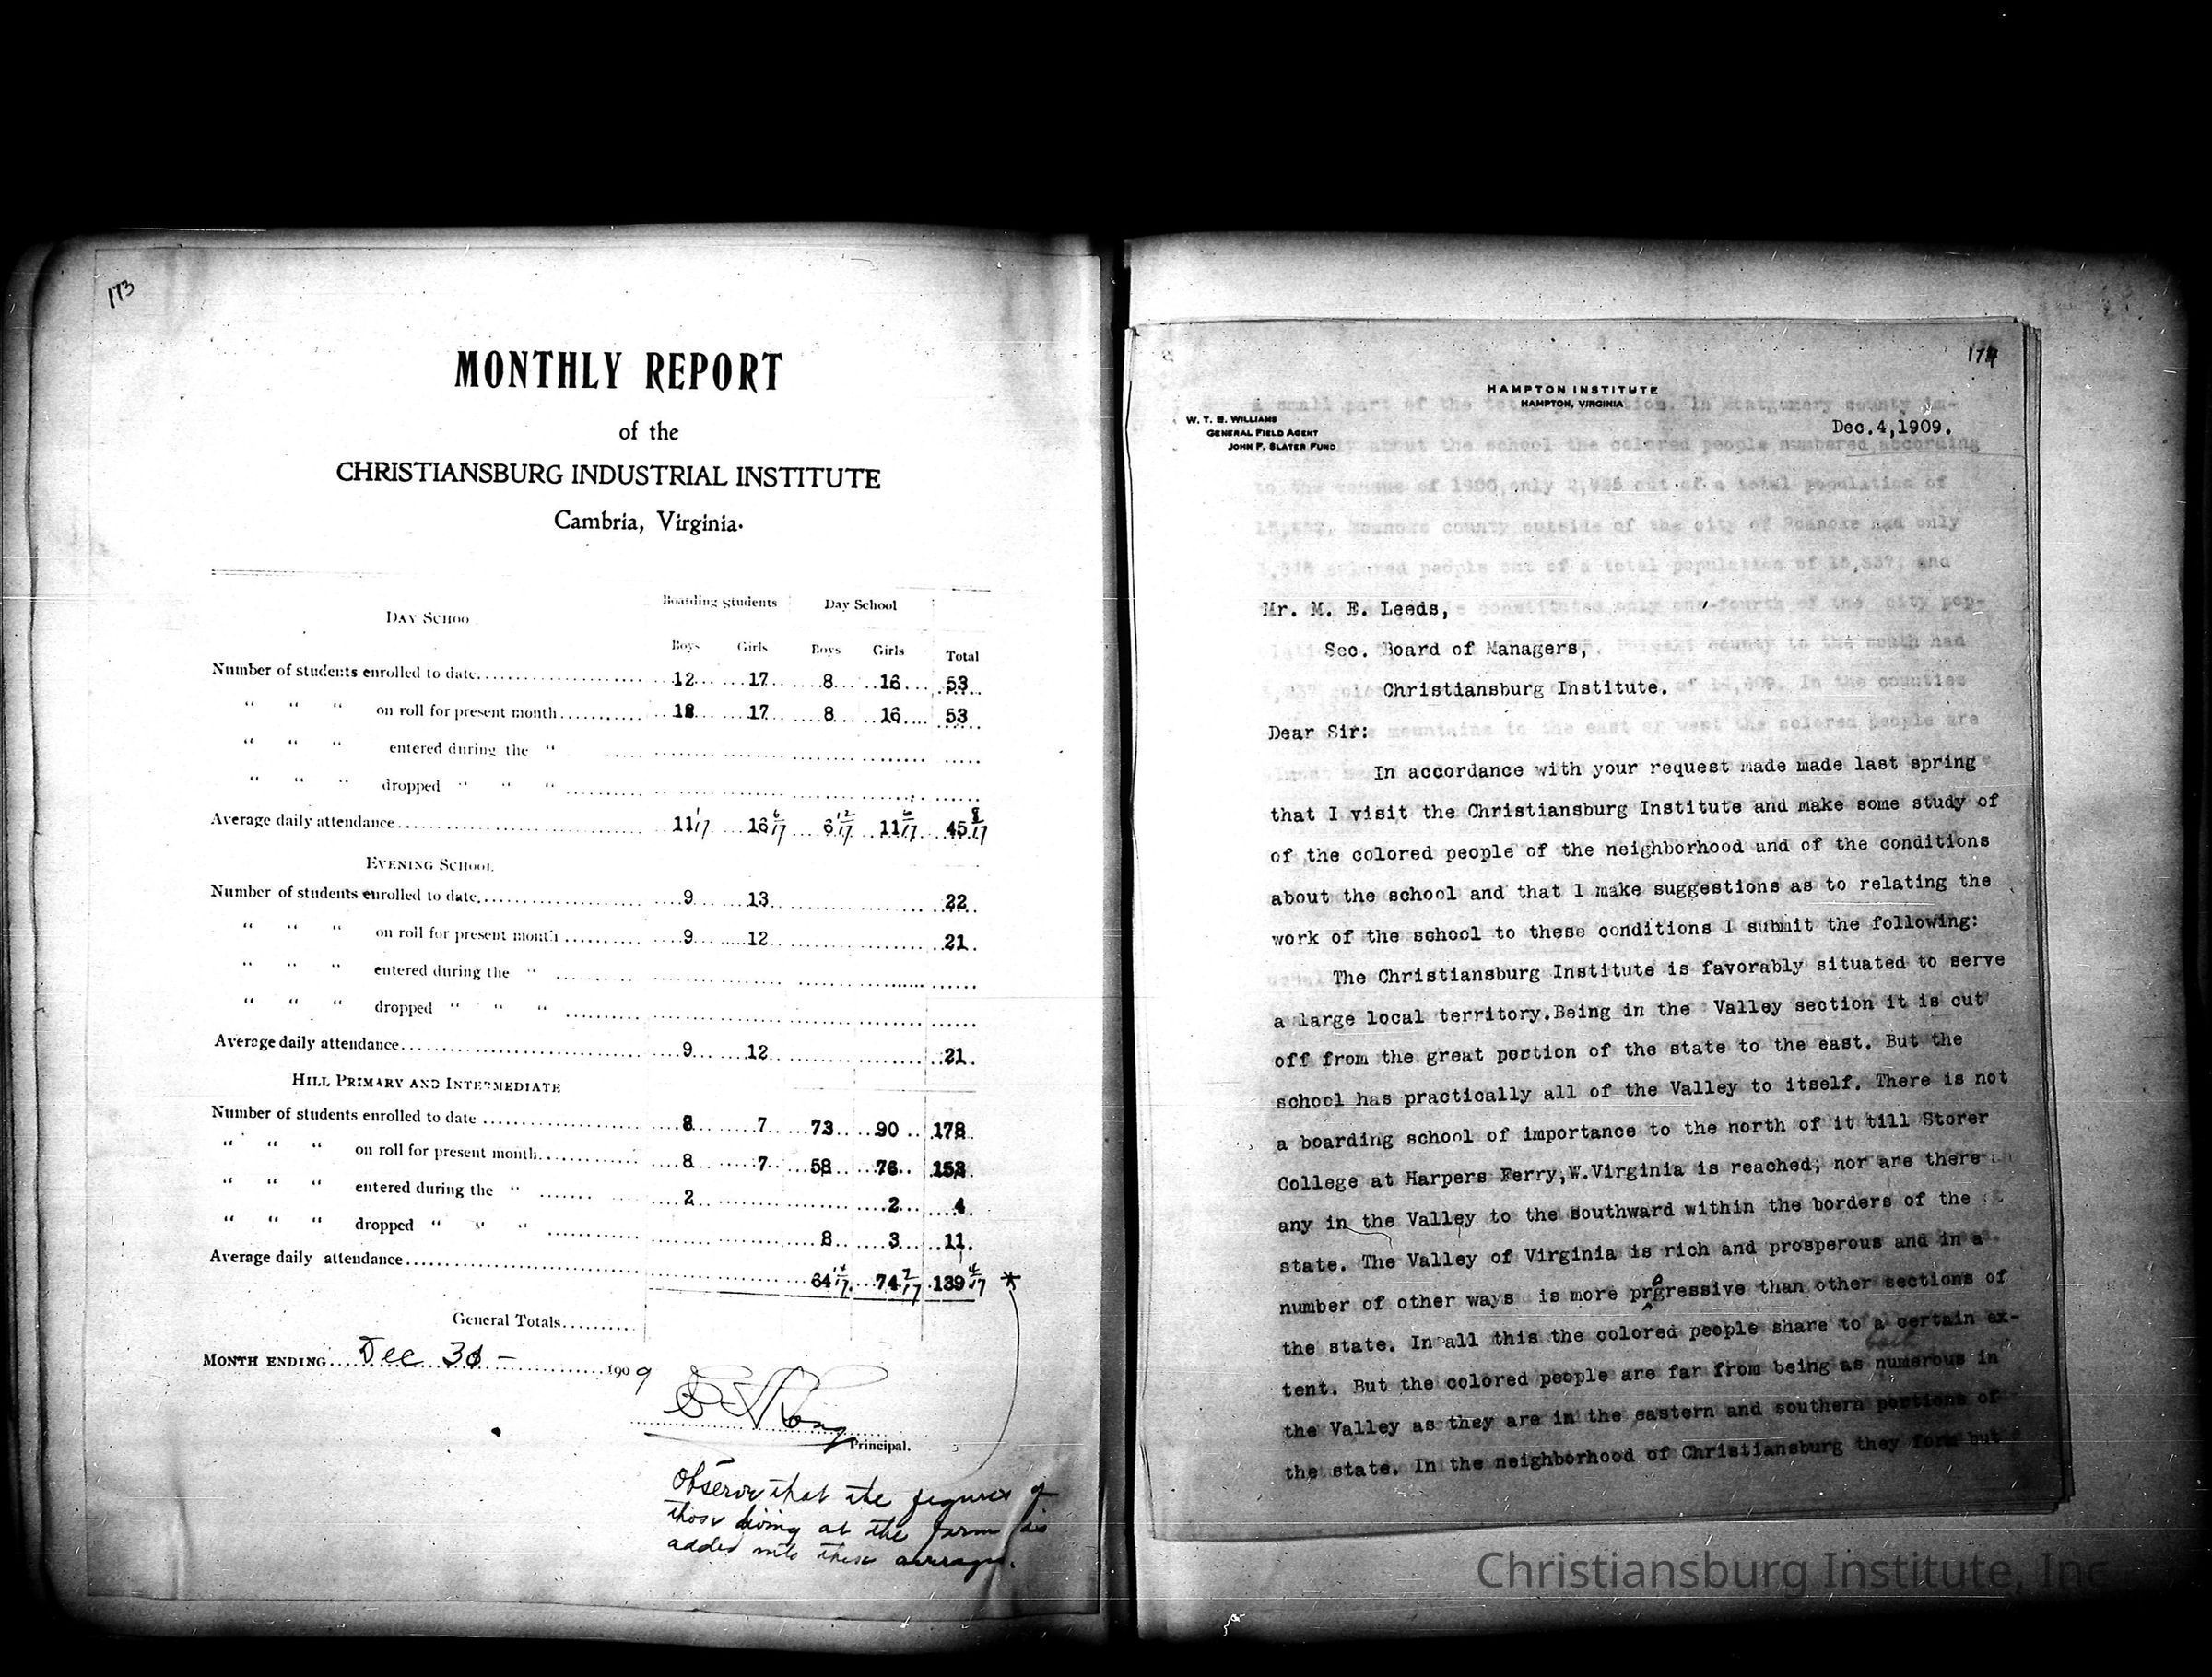 173
MONTHLY REPORT
of the
CHRISTIANSBURG INDUSTRIAL INSTITUTE
Cambria, Virginia.
DAY SCHOO Boarding Students Day School
Boys Girls Boys Girls Total
Number of students enrolled to date 12 17 8 16 53
" " " on roll for present month 12 17 8 16 53
" " " entered during the "
" " " dropped " " "
Average daily attendance 11 1/17 16 6/17 6 12/17 11 6/17 45 8/17
EVENING SCHOOL
Number of students enrolled to date 9 13 22
" " " on roll for present month 9 12 21
" " " entered during the "
" " " dropped " " "
Average daily attendance 9 12 21
HILL PRIMARY AND INTERMEDIATE
Number of students enrolled to date 8 7 73 90 178
" " " on roll for present month 8 7 58 76
" " " entered during the " 2 2 4
" " " dropped " " " 8 3 11
Average daily attendance 64 74 2/17 139 4/17 *
General Totals
MONTH ENDING Dec 31 - 1909
Principal.
Observe that the figures of
those living at the farm is
added into these averages.
174
HAMPTON INSTITUTE
HAMPTON, VIRGINIA
W. T. B. WILLIAMS
GENERAL FIELD AGENT
JOHN F. SLATER FUND
Dec.4,1909.
Mr. M. E. Leeds,
Sec. Board of Managers,
Christiansburg Institute.
Dear Sir:
In accordance with your request made made last spring
that I visit the Christiansburg Institute and make some study of
of the colored people of the neighborhood and of the conditions
about the school and that I make suggestions as to relating the
work of the school to these conditions I submit the following:
The Christiansburg Institute is favorably situated to serve
a large local territory.Being in the Valley section it is cut
off from the great portion of the state to the east. But the
school has practically all of the Valley to itself. There is not
a boarding school of importance to the north of it till Storer
College at Harpers Ferry,W.Virginia is reached; nor are there
any in the Valley to the southward within the borders of the
state. The Valley of Virginia is rich and prosperous and in a
number of other ways is more progressive than other sections of
the state. In all this the colored people share to a certain ex-
tent. But the colored people are far from being as numerous in
the Valley as they are in the eastern and southern portions of
the state. In the neighborhood of Christiansburg they form but
Christiansburg Institute, Inc